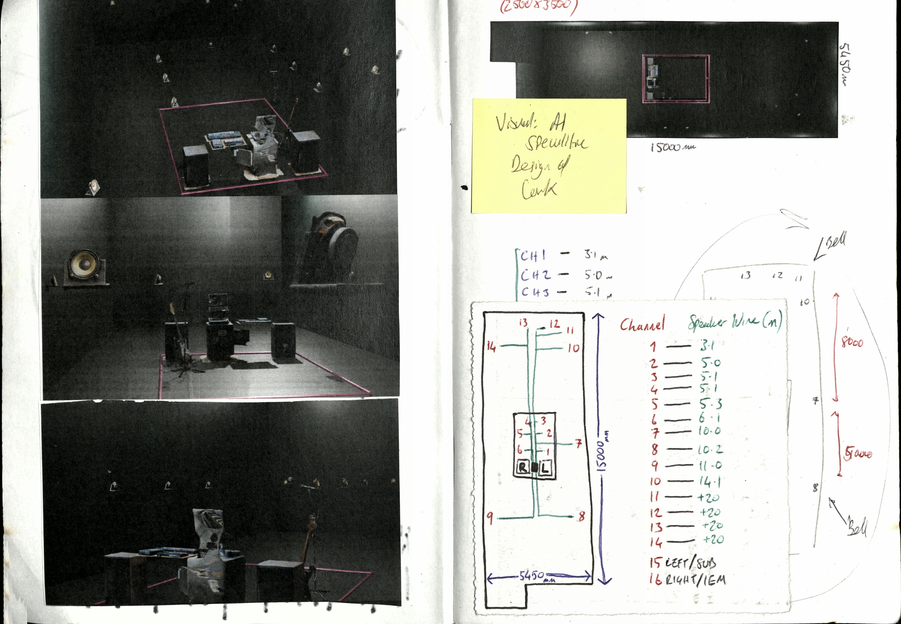 (2500x3500)
5450m
15000mm
Visual: AI
Speculative
Design of
CH1 — 3.1m
CH2 — 5.0m
CH3 — 5.1m
Bell
13 12 11
10
8000
7
8
Bell
13 12 11
14 10
4 3
5 2
6 1
7
R L
9 8
15000mm
5450mm
Channel Speaker Wire (m)
1 — 3.1
2 — 5.0
3 — 5.1
4 — 5.1
5 — 5.3
6 — 6.1
7 — 10.0
8 — 10.2
9 — 11.0
10 — 14.1
11 — +20
12 — +20
13 — +20
14 — +20
15 LEFT/SUB
16 RIGHT/IEM